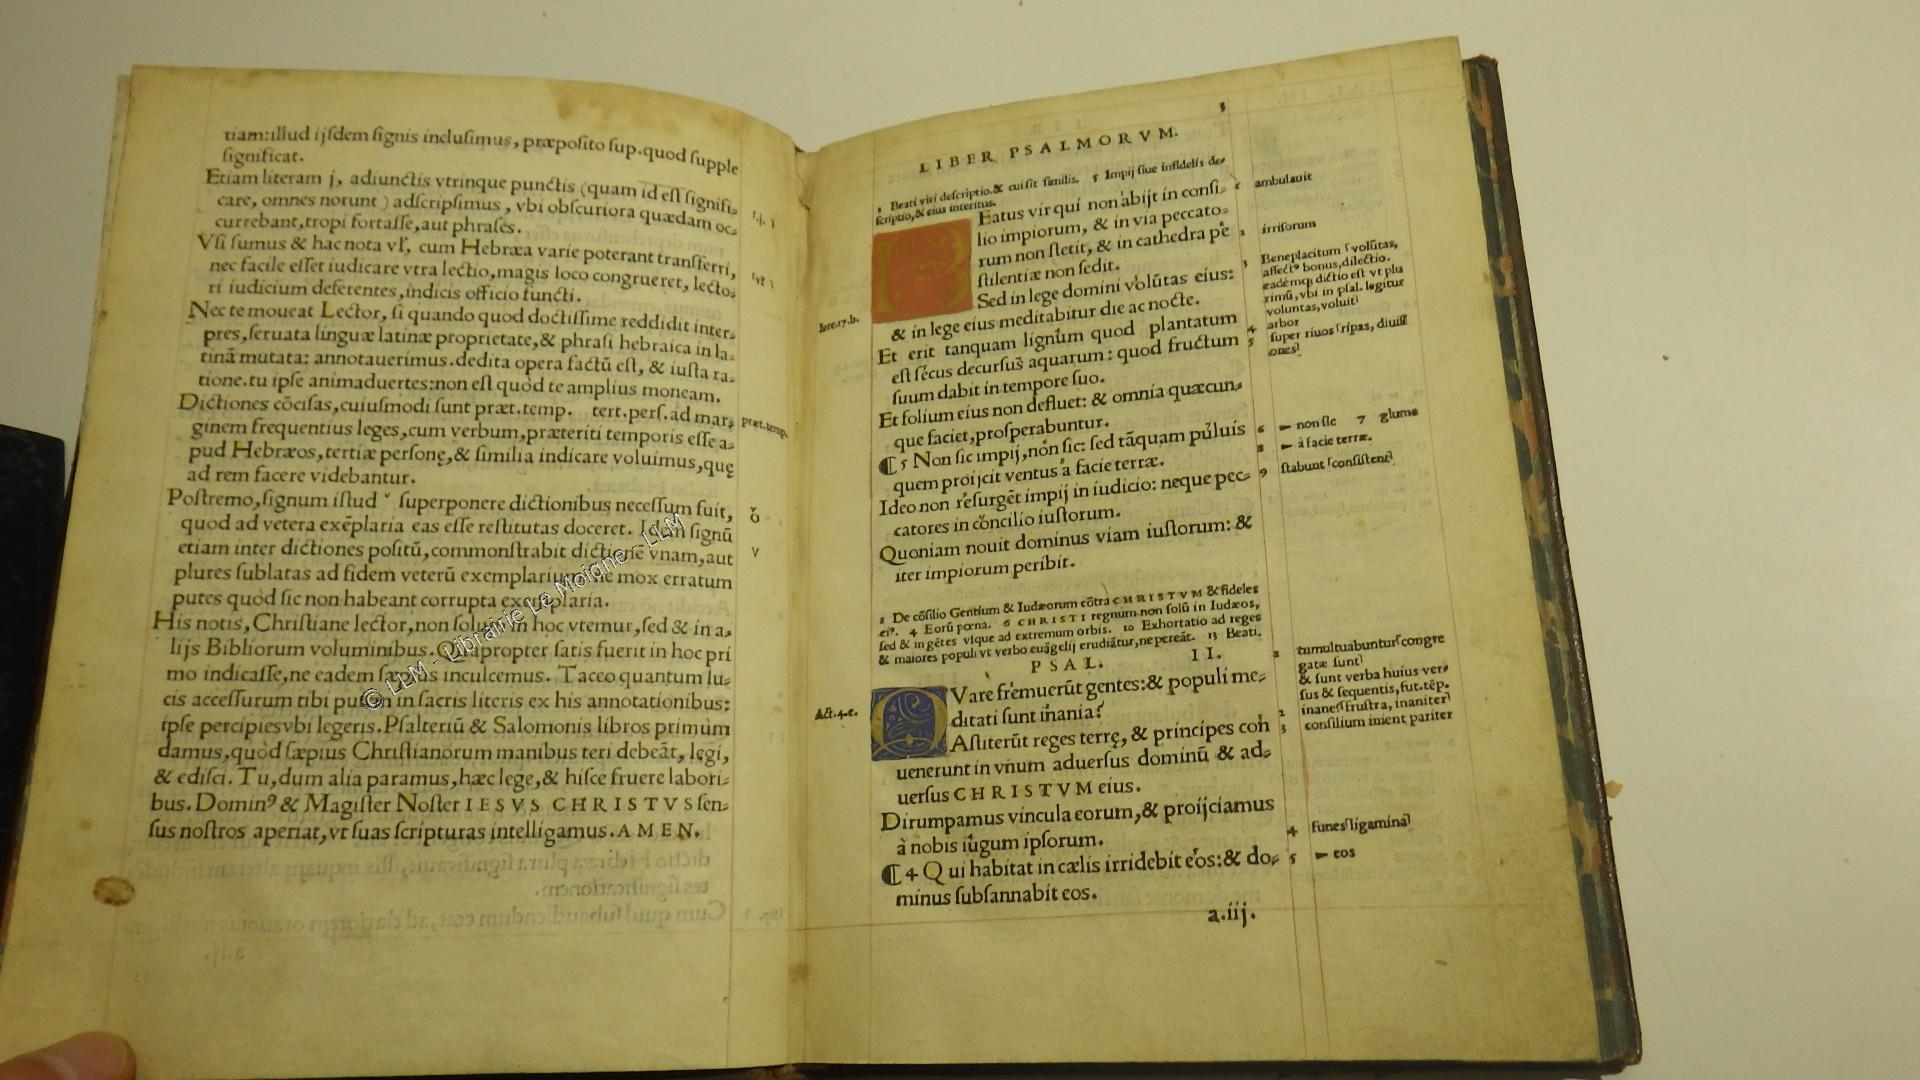 tiam:illud ijſdem ſignis incluſimus, præpoſito ſup.quod ſupple
ſignificat.
Etiam literam j, adiunctis vtrinque punctis (quam id eſt ſignifi-
care, omnes norunt) adſcripſimus, vbi obſcuriora quædam oc-
currebant,tropi fortaſſe,aut phraſes.
Vſi ſumus & hac nota vľ, cum Hebræa varie poterant transferri,
nec facile eſſet iudicare vtra lectio,magis loco congrueret, lecto-
ri iudicium deferentes,indicis officio functi.
Nec te moueat Lector, ſi quando quod doctiſſime reddidit inter-
pres,ſeruata linguæ latinæ proprietate,& phraſi hebraica in la-
tinā mutata: annotauerimus.dedita opera factū eſt, & iuſta ra-
tione.tu ipſe animaduertes:non eſt quod te amplius moneam.
Dictiones cōciſas,cuiuſmodi ſunt præt.temp. tert.perſ.ad mar-
præt.temp.
ginem frequentius leges,cum verbum,præteriti temporis eſſe a-
pud Hebræos,tertiæ perſonę,& ſimilia indicare voluimus,quę
ad rem facere videbantur.
Poſtremo,ſignum iſtud ˅ ſuperponere dictionibus neceſſum fuit,
quod ad vetera exēplaria eas eſſe reſtitutas doceret. Idem ſignū
etiam inter dictiones poſitū,commonſtrabit dictione vnam,aut
v
plures ſublatas ad fidem veterū exemplarium:ne mox erratum
putes quòd ſic non habeant corrupta exemplaria.
His notis, Chriſtiane lector,non ſolum in hoc vtemur,ſed & in a-
lijs Bibliorum voluminibus.Quapropter ſatis fuerit in hoc pri
mo indicaſſe,ne eadem ſæpius inculcemus. Taceo quantum lu-
cis acceſſurum tibi putem in ſacris literis ex his annotationibus:
ipſe percipies vbi legeris.Pſalteriū & Salomonis libros primùm
damus,quòd ſæpius Chriſtianorum manibus teri debeāt, legi,
& ediſci. Tu,dum alia paramus,hæc lege,& hiſce fruere labori-
bus. Dominꝰ & Magiſter Noſter IESVS CHRISTVS ſen-
ſus noſtros aperiat,vt ſuas ſcripturas intelligamus. AMEN.
© LLM - Librairie Le Moigne - LLM
3
LIBER PSALMORVM.
1 Beati viri deſcriptio.& cui ſit ſimilis. 5 Impij ſiue infidelis de-
ſcriptio,& eius interitus.
BEatus vir qui non abijt in conſi-
lio impiorum, & in via peccato-
rum non ſtetit, & in cathedra pe
ſtilentiæ non ſedit.
Sed in lege domini volūtas eius:
& in lege eius meditabitur die ac nocte.
Et erit tanquam lignum quod plantatum
eſt ſecus decurſus aquarum: quod fructum
ſuum dabit in tempore ſuo.
Et folium eius non defluet: & omnia quæcun-
que faciet,proſperabuntur.
¶ 5 Non ſic impij,non ſic: ſed tāquam puluis
quem proijcit ventus a facie terræ.
Ideo non reſurgēt impij in iudicio: neque pec-
catores in concilio iuſtorum.
Quoniam nouit dominus viam iuſtorum: &
iter impiorum peribit.
Iere.17.b.
1 ambulauit
2 irriſorum
3 Beneplacitum ſ volūtas,
affectꝰ bonus,dilectio.
eadémq; dictio eſt vt plu
rimū,vbi in pſal. legitur
voluntas,voluit)
4 arbor
5 ſuper riuos ſripas, diuiſſ
ones)
6 non ſic 7 gluma
8 à facie terræ.
9 ſtabunt ſconſiſtent)
1 De cōſilio Gentium & Iudæorum cōtra CHRISTVM & fideles
eiꝰ. 4 Eorū pœna. 6 CHRISTI regnum non ſolū in Iudæos,
ſed & in gētes vſque ad extremum orbis. 10 Exhortatio ad reges
& maiores populi vt verbo euāgelij erudiātur,ne pereāt. 13 Beati.
PSAL. II.
QVare fremuerūt gentes:& populi me-
ditati ſunt inania?
Aſtiterūt reges terrę, & principes con
uenerunt in vnum aduerſus dominū & ad-
uerſus CHRISTVM eius.
Dirumpamus vincula eorum,& proijciamus
à nobis iugum ipſorum.
¶ 4 Qui habitat in cælis irridebit eos:& do-
minus ſubſannabit eos.
Act.4.e.
1 tumultuabuntur ſcongre
gatæ ſunt)
& ſunt verba huius ver-
ſus & ſequentis,fut.tēp.
2 inane ſfruſtra, inaniter)
3 conſilium inient pariter
4 funes ſligamina)
5 eos
a.iij.